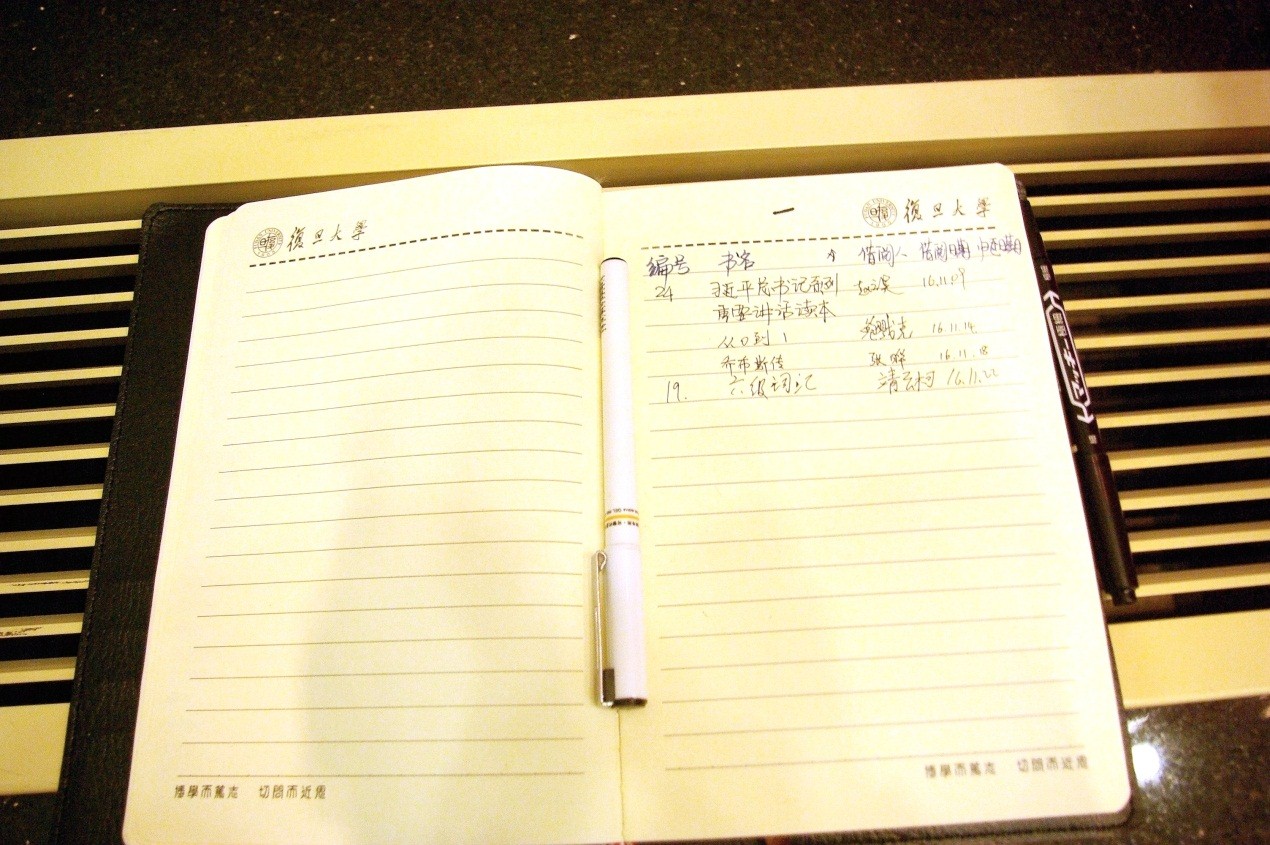 復旦大學
博學而篤志 切問而近思
一
復旦大學
编号 书名 借阅人 借阅日期 归还日期
24 习近平总书记系列 16.11.09
重要讲话读本
从0到1 16.11.14
乔布斯传 张晔 16.11.18
19. 六级词汇 16.11.22
博學而篤志 切問而近思